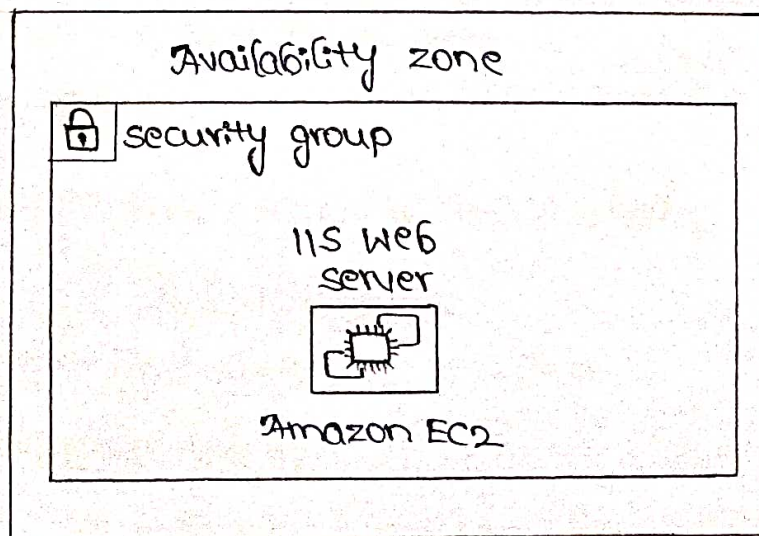 Availability zone
security group
IIS Web
server
Amazon EC2